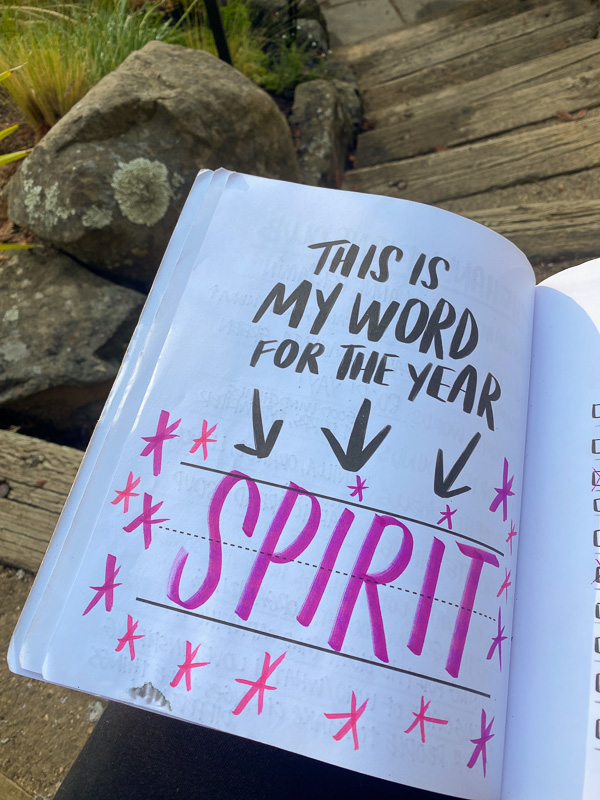 THIS IS
MY WORD
FOR THE YEAR
SPIRIT